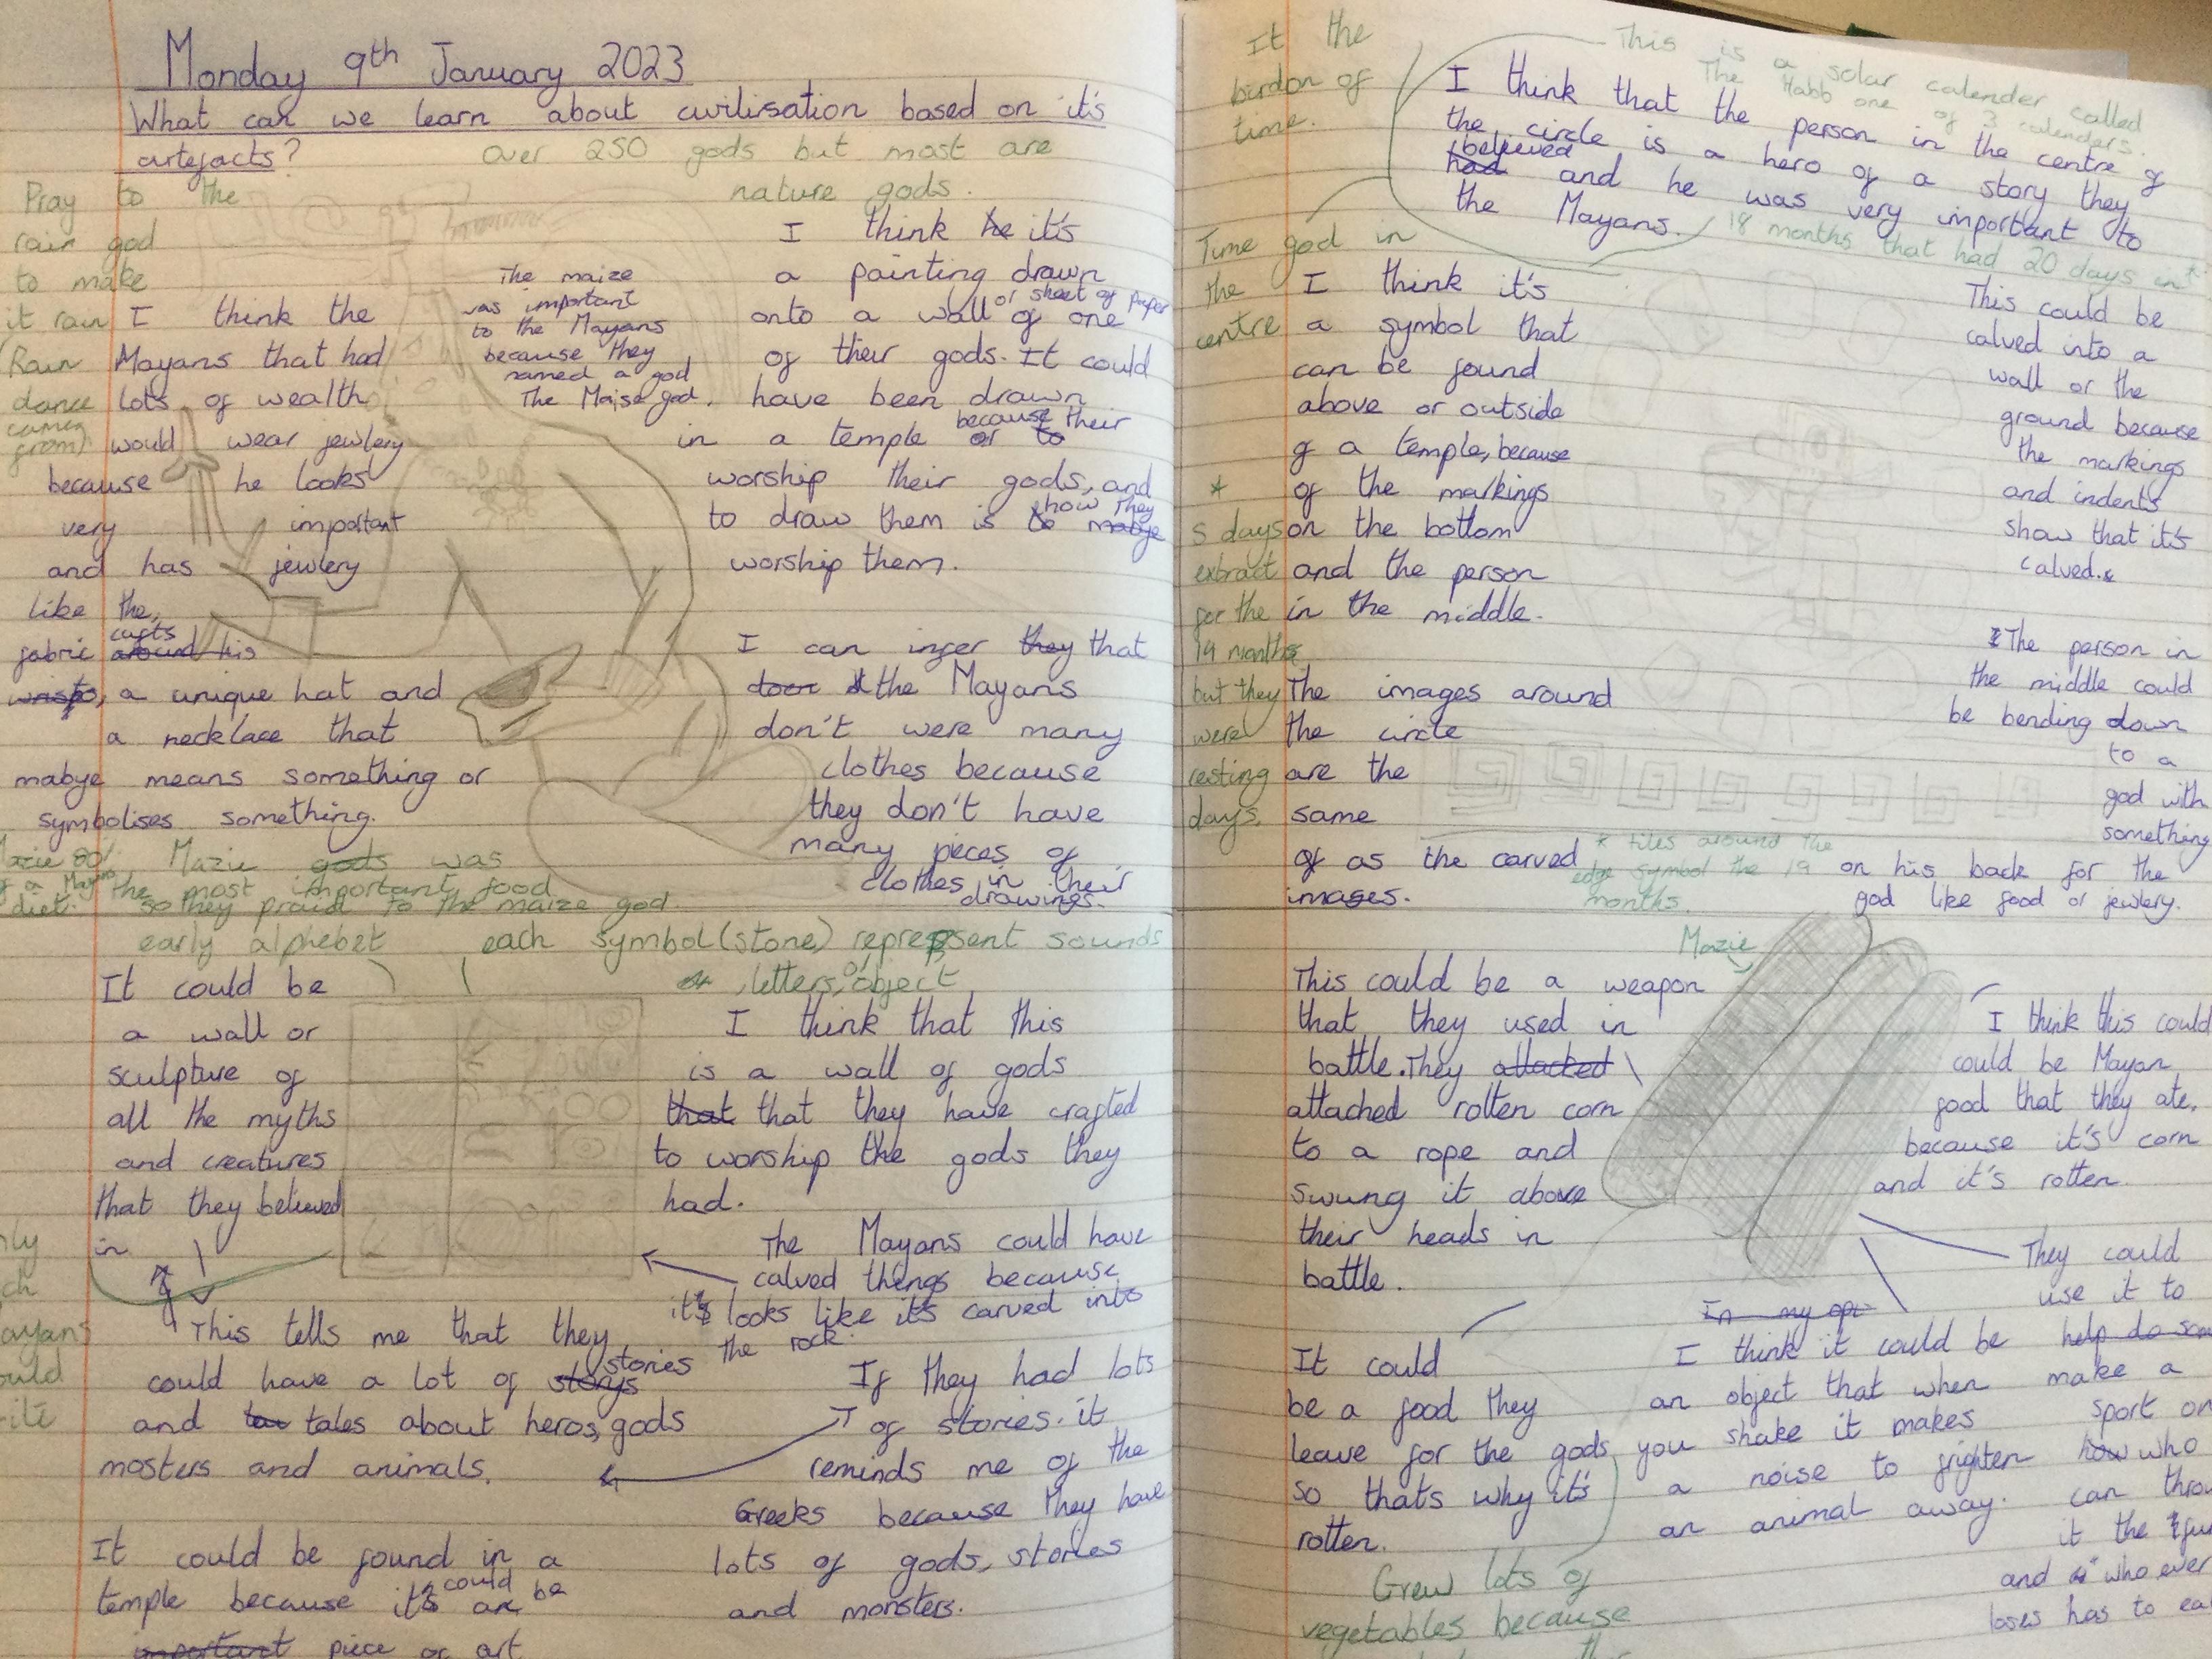 Monday 9th January 2023
What can we learn about civilisation based on it's
artefacts?
over 250 gods but most are
nature gods.
Pray to the
rain god
to make
it rain
Rain
dance
came
from
I think the
Mayans that had
lots of wealth
would wear jewlery
because he looks
very important
and has jewlery
like the
fabric around his
cuffs
wrists, a unique hat and
a necklace that
mabye means something or
symbolises something.
The maize
was important
to the Mayans
because they
named a god
The Maise god.
I think he it's
a painting drawn
onto a wall or sheet of paper of one
of their gods. It could
have been drawn
in a temple or to because their
worship their gods, and
to draw them is to mabye show they
worship them.
I can infer they that
the Mayans
don't were many
clothes because
they don't have
many pieces of
clothes in their
drawings.
Mazie 80%
of a Mayans
diet.
Mazie gods was
the most important food
so they praid to the maize god.
early alphebet
each symbol (stone) represent sounds
, letters, or object
It could be
a wall or
sculpture of
all the myths
and creatures
that they believed
in
I think that this
is a wall of gods
that that they have crafted
to worship the gods they
had.
The Mayans could have
calved things because
it's looks like it's carved into
the rock.
This tells me that they
could have a lot of storys stories
and tales about heros, gods
mosters and animals.
If they had lots
of stories. it
reminds me of the
Greeks because they have
lots of gods, stories
and monsters.
It could be found in a
temple because it's could be
important piece of art
It the
burdon of
time.
This is a solar calender called
The Habb one of 3 calenders.
I think that the person in the centre of
the circle is a hero of a story they
had believed and he was very important to
the Mayans.
18 months that had 20 days in *
Time god in
the
centre
I think it's
a symbol that
can be found
above or outside
of a temple, because
of the markings
on the bottom
and the person
in the middle.
*
5 days
extract
for the
19 months
but they
were
resting
days.
This could be
calved into a
wall or the
ground because
the markings
and indents
show that it's
calved.
The person in
the middle could
be bending down
to a
god with
something
on his back for the
god like food or jewlery.
The images around
the circle
are the
same
of as the carved
images.
* tiles around the
edge symbol the 19
months.
Mazie
This could be a weapon
that they used in
battle. They attacked
attached rotten corn
to a rope and
swung it above
their heads in
battle.
I think this could
could be Mayan
food that they ate,
because it's corn
and it's rotten.
They could
use it to
help do
make a
sport on
how who
can
it the
and who ever
loses has to
It could
be a food they
leave for the gods
so thats why it's
rotten.
In my
I think it could be
an object that when
you shake it makes
a noise to frighten
an animal away.
Grew lots of
vegetables because